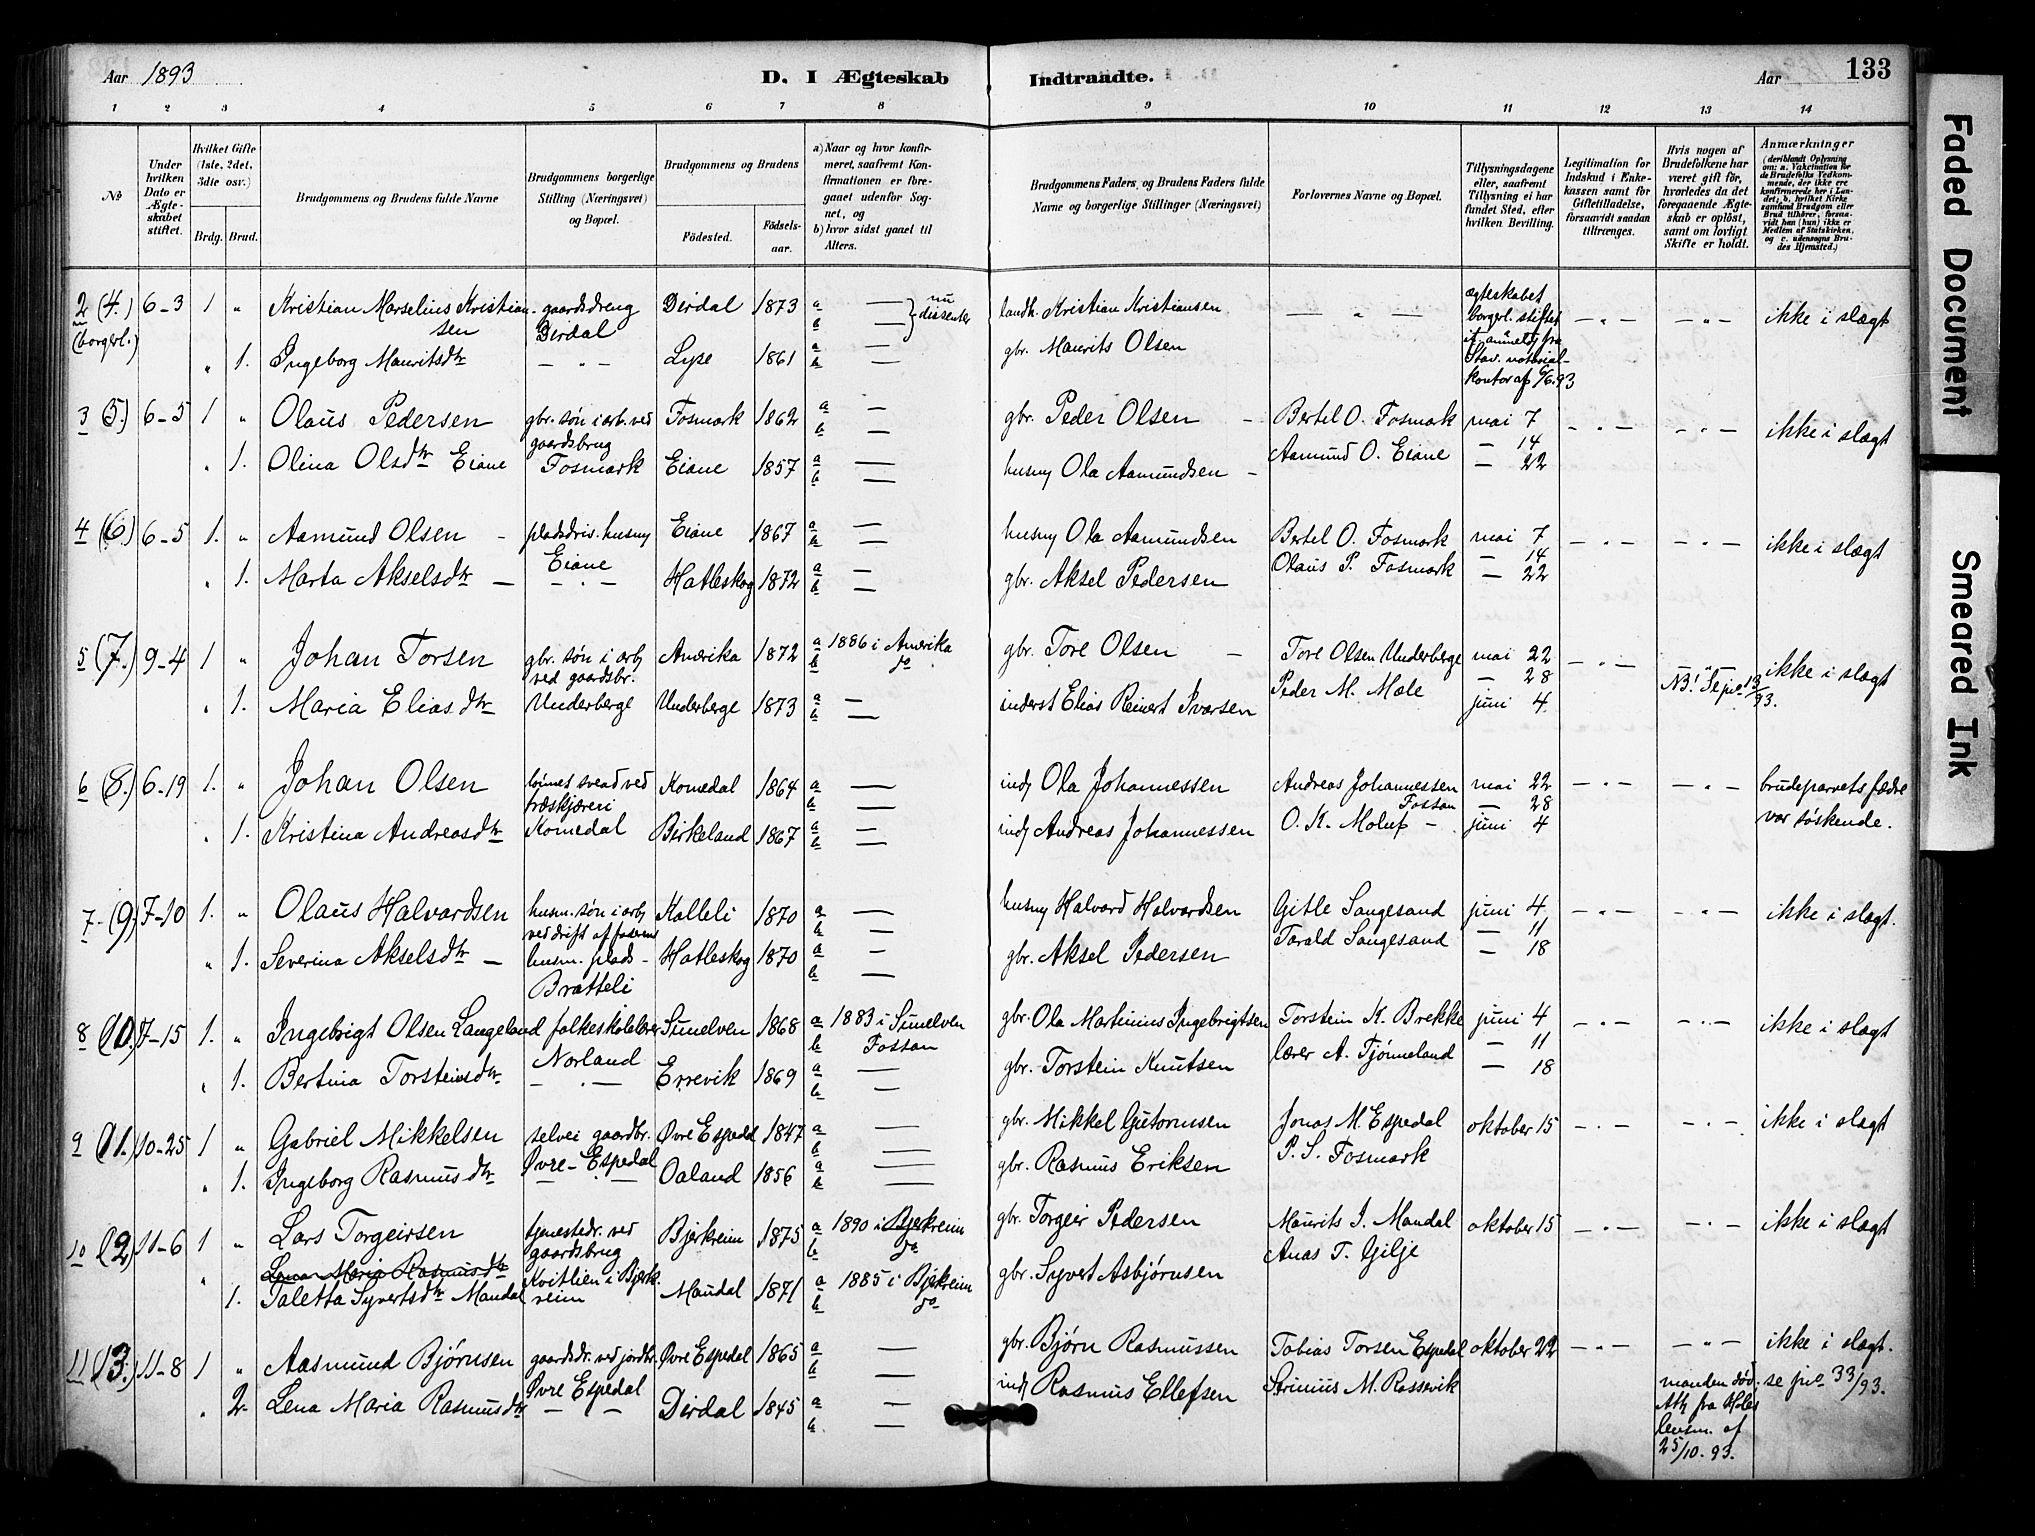 Aar 1893
D. I Ægteskab Indtraadte.
Aar
133
1 2 3 4 5 6 7 8 9 10 11 12 13 14
No
Under hvilken Dato er Ægteskabet stiftet.
Hvilket Gifte (1ste, 2det, 3die osv.)
Brdg. Brud.
Brudgommens og Brudens fulde Navne
Brudgommens borgerlige Stilling (Næringsvei) og Bopæl.
Brudgommens og Brudens
Fødested.
Fødselsaar.
a) Naar og hvor konfirmeret, saafremt Konfirmationen er foregaaet udenfor Sognet, og
b) hvor sidst gaaet til Alters.
Brudgommens Faders, og Brudens Faders fulde Navne og borgerlige Stillinger (Næringsvei)
Forlovernes Navne og Bopæl.
Tillysningsdagene eller, saafremt Tillysning ei har fundet Sted, efter hvilken Bevilling.
Legitimation for Indskud i Enkekassen samt for Giftetilladelse, forsaavidt saadan tiltrænges.
Hvis nogen af Brudefolkene har været gift før, hvorledes da det foregaaende Ægteskab er opløst, samt om lovligt Skifte er holdt.
Anmærkninger
(deriblandt Oplysning om: a. Vakcination for de Brudefolks Vedkommende, der ikke ere konfirmerede her i Landet; b. hvilket Kirkesamfund Brudgom eller Brud tilhører, forsaavidt han (hun) ikke er Medlem af Statskirken, og c. udensogns Brudes Hjemsted.)
2 (4.) 6-3 1 " Kristian Marselius Kristiansen gaardsdreng Dirdal Dirdal 1873 a — b — nu dissenter landh. Kristian Kristiansen — " — ægteskabet borgerl. stiftet — " — — " — ikke i slægt
(borgerl.)
" 1. Ingeborg Mauritsdtr — " — Lyse 1861 a — b — gbr. Maurits Olsen
Stav. notorial-kontor af 6/6.93
3 (5.) 6-5 1 " Olaus Pedersen gbr. søn i arb. ved gaardsbrug Fosmark 1862 a — b — gbr. Peder Olsen — Bertel O. Fosmark mai 7 — " — — " — ikke i slægt
" 1. Olina Olsdtr Eiane Fosmark Eiane 1857 a — b — husm Ola Aamundsen — Aamund O. Eiane — 14 — 22
4 (6) 6-5 1. " Aamund Olsen — pladsdriv. husm Eiane Eiane 1867 a — b — husm Ola Aamundsen Bertel O. Fosmark mai 7 — " — — " — ikke i slægt
" 1. Marta Akselsdtr — — " — Hatleskog 1872 a — b — gbr. Aksel Pedersen Olaus P. Fosmark — 14 — 22
5 (7.) 9-4 1 " Johan Torsen gbr. søn i arb ved gaardsbr. Amerika 1872 a 1886 i Amerika b do gbr. Tore Olsen — Tore Olsen Underberge mai 22 — " — " ikke i slægt
" 1. Maria Eliasdtr Underberge Underberge 1873 a — b — inderst Elias Reinert Ivarsen Peder M. Mæle — 28 juni 4
6 (8.) 6-19 1. " Johan Olsen træskjæreri Komedal 1864 a — b — indj Ola Johannessen Andreas Johannessen Fossan mai 22 — " — — " — brudeparrets fædre var søskende.
" 1. Kristina Andreasdtr Komedal Birkeland 1867 a — b — indj Andreas Johannessen O. K. Moluf — — 28 juni 4
7 (9) 7-10 1. " Olaus Halvardsen husm. søn i arb ved drift af faderens Kalleli 1870 a — b — husm Halvard Halvardsen Gitle Sangesand juni 4 — " — — " — ikke i slægt.
" 1. Severina Akselsdtr — husm. plads — Bratteli Hatleskog 1870 a — b — gbr. Aksel Pedersen Tarald Sangesand — 11 — 18
8 (10.) 7-15 1. " Ingebrigt Olsen Langeland folkeskolelærer Norland Sunelven 1868 a 1883 i Sunelven b Fossan gbr. Ola Martinius Ingebrigtsen Torstein K. Brekke juni 4 — " — — " — ikke i slægt
" 1. Bertina Torsteinsdtr — " — Errevik 1869 a — b — gbr. Torstein Knutsen lærer A. Tjønneland — 11 — 18
9 (11.) 10-25 1 " Gabriel Mikkelsen selvei gaardbr. Øvre Espedal Øvre Espedal 1847 a — b — gbr. Mikkel Gutormsen Jonas M. Espedal oktober 15 — " — — " — ikke i slægt
" 1. Ingeborg Rasmusdtr — " — Oaland 1856 a — b — gbr. Rasmus Eriksen P. S. Fosmark
10 (12) 11-6 1 " Lars Torgeirsen tjenestedr. ved gaardsbrug Bjerkreim 1875 a 1890 i Bjerkreim b do gbr. Torgeir Pedersen Maurits J. Mandal oktober 15 — " — — " — ikke i slægt
" Lena Maria Rasmusdtr
1. Taletta Syvertsdtr Mandal Kvitlien i Bjerkreim Maudal 1871 a 1885 i Bjerkreim b do gbr. Syvert Asbjørnsen Anas T. Gilje
11 (13.) 11-8 1 " Aasmund Bjørnsen gaardsdr. ved jordbr. Øvre Espedal Øvre Espedal 1865 a — b — gbr. Bjørn Rasmussen Tobias Torsen Espedal oktober 22 — " — — " — ikke i slægt.
" 2. Lena Maria Rasmusdtr — " — Dirdal 1845 a — b — indj Rasmus Ellefsen M. Rossevik manden død. se jno 33/93.
Att fra Høles lensm. af 25/10.93.
Faded Document
Smeared Ink